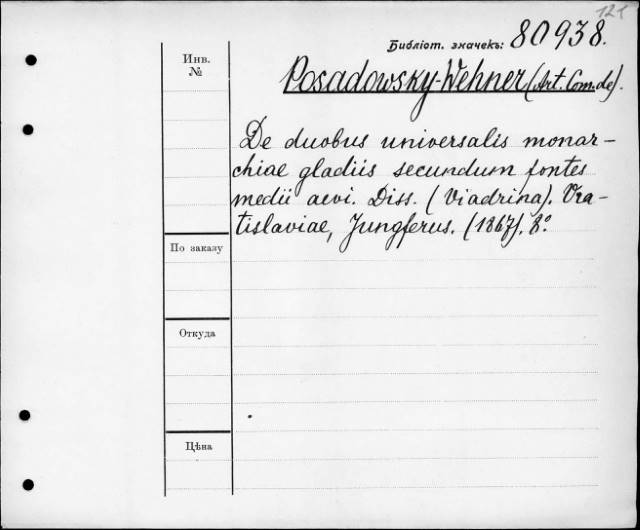 121
Библіот. значекъ: 80938.
Инв.
№
Posadowsky-Wehner (Art. Com. de).
De duobus universalis monar-
chiae gladiis secundum fontes
medii aevi. Diss. (Viadrina). Vra-
tislaviae, Jungferus. (1867). 8.º
По заказу
Откуда
Цѣна